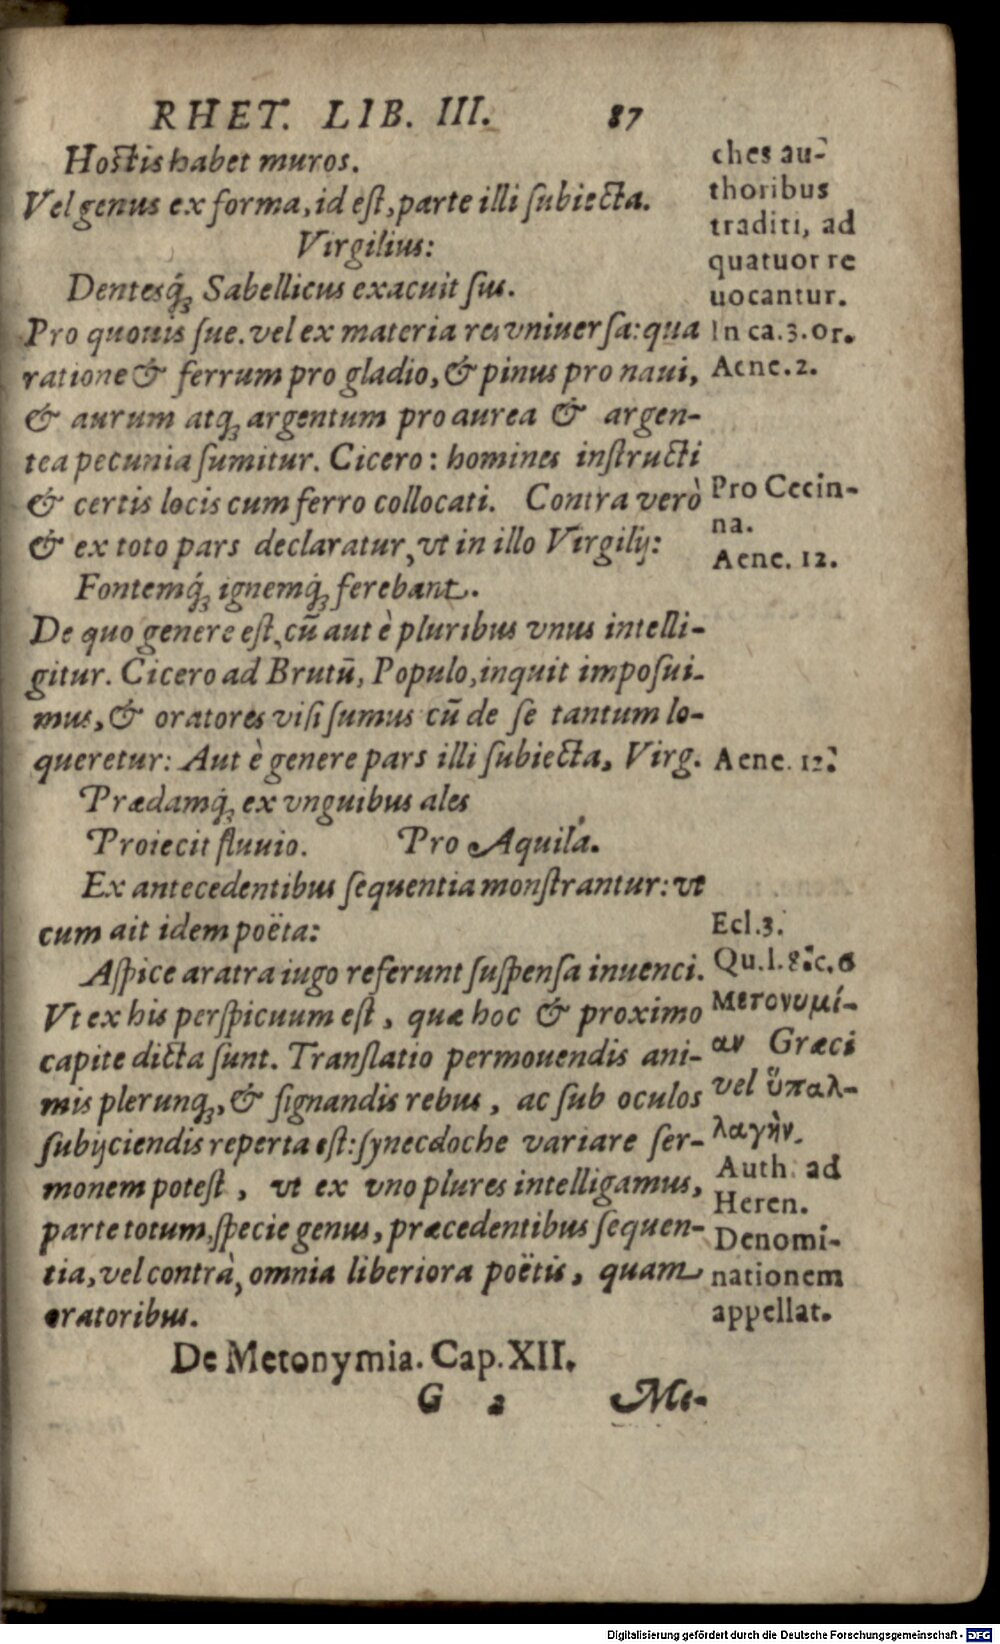 RHET. LIB. III. 87
Hostis habet muros.
Vel genus ex forma, id eſt, parte illi ſubiecta.
Virgilius:
Dentesq́; Sabellicus exacuit ſus.
Pro quouis ſue. vel ex materia res vniuerſa: qua
ratione & ferrum pro gladio, & pinus pro naui,
& aurum atq; argentum pro aurea & argen-
tea pecunia ſumitur. Cicero: homines inſtructi
& certis locis cum ferro collocati. Contra verò
& ex toto pars declaratur, vt in illo Virgilij:
Fontemq́; ignemq́; ferebant.
De quo genere eſt, cū aut è pluribus vnus intelli-
gitur. Cicero ad Brutū, Populo, inquit imposui-
mus, & oratores viſi ſumus cū de ſe tantum lo-
queretur: Aut è genere pars illi ſubiecta, Virg.
Prædamq́; ex vnguibus ales
Proiecit fluuio. Pro Aquila.
Ex antecedentibus ſequentia monſtrantur: vt
cum ait idem poëta:
Aſpice aratra iugo referunt ſuſpenſa inuenci.
Vt ex his perſpicuum eſt, quæ hoc & proximo
capite dicta ſunt. Tranſlatio permouendis ani-
mis plerunq;, & ſignandis rebus, ac ſub oculos
ſubijciendis reperta eſt: ſynecdoche variare ſer-
monem poteſt, vt ex vno plures intelligamus,
parte totum, ſpecie genus, præcedentibus ſequen-
tia, vel contrà, omnia liberiora poëtis, quam
oratoribus.
De Metonymia. Cap. XII.
G 2 Me-
ches au-
thoribus
traditi, ad
quatuor re
uocantur.
In ca.3.or.
Aene.2.
Pro Cecin-
na.
Aene. 12.
Aene. 12.
Ecl.3.
Qu.l.8.c.6
μετονυμί-
αν Græci
vel ὕπαλ-
λαγὴν.
Auth. ad
Heren.
Denomi-
nationem
appellat.
Digitalisierung gefördert durch die Deutsche Forschungsgemeinschaft - DFG